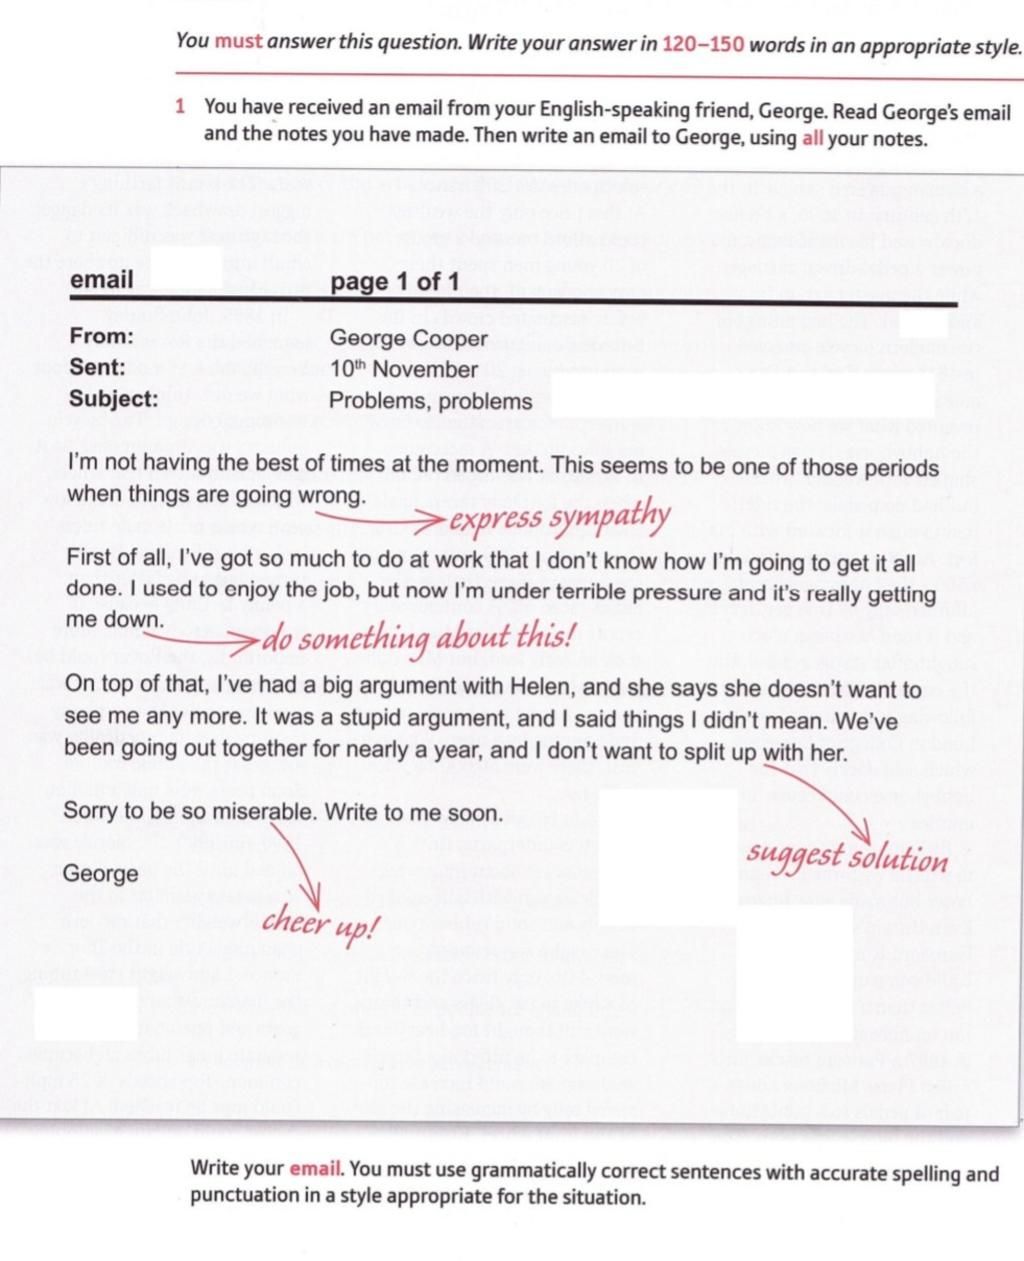 You must answer this question. Write your answer in 120–150 words in an appropriate style.
1 You have received an email from your English-speaking friend, George. Read George's email
and the notes you have made. Then write an email to George, using all your notes.
email page 1 of 1
From: George Cooper
Sent: 10th November
Subject: Problems, problems
I'm not having the best of times at the moment. This seems to be one of those periods
when things are going wrong.
express sympathy
First of all, I've got so much to do at work that I don't know how I'm going to get it all
done. I used to enjoy the job, but now I'm under terrible pressure and it's really getting
me down.
do something about this!
On top of that, I've had a big argument with Helen, and she says she doesn't want to
see me any more. It was a stupid argument, and I said things I didn't mean. We've
been going out together for nearly a year, and I don't want to split up with her.
Sorry to be so miserable. Write to me soon.
suggest solution
George
cheer up!
Write your email. You must use grammatically correct sentences with accurate spelling and
punctuation in a style appropriate for the situation.